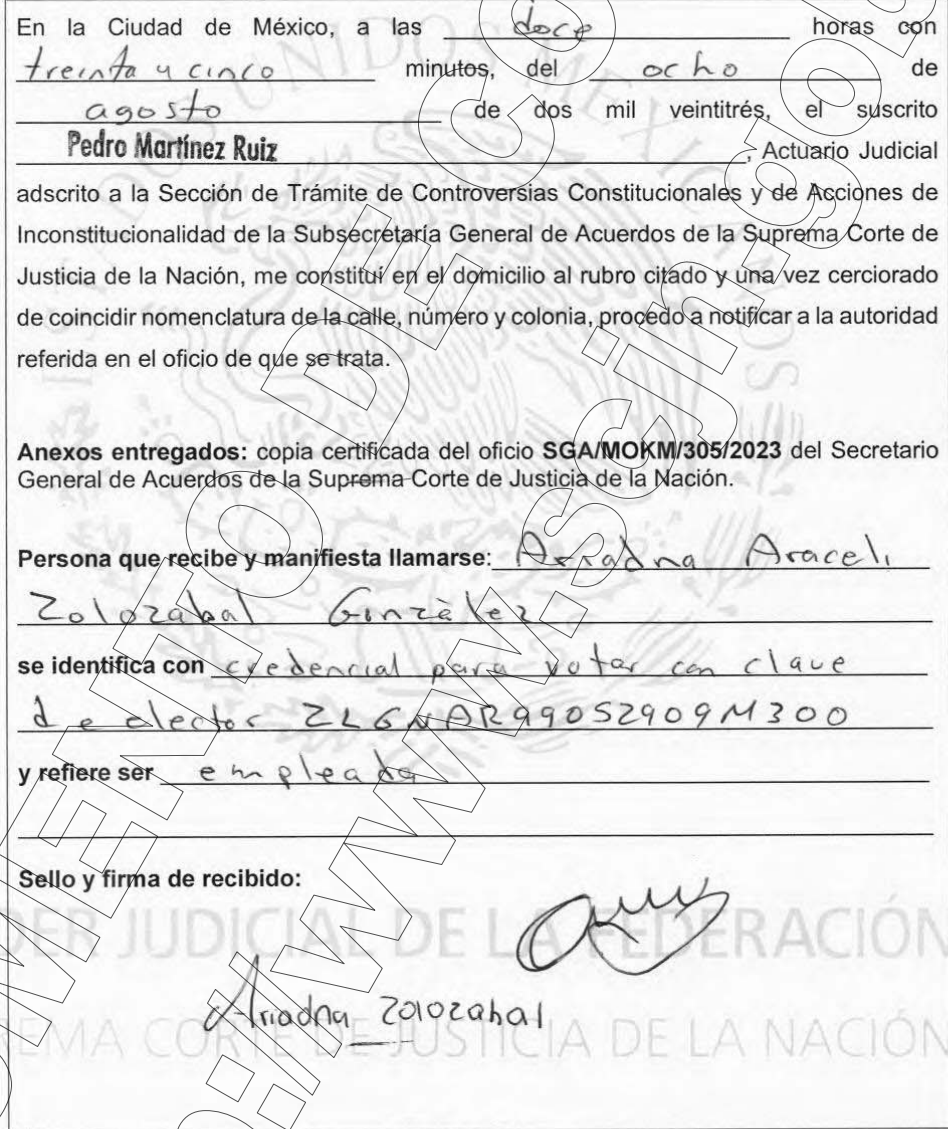 En la Ciudad de México, a las doce horas con
treinta y cinco minutos, del ocho de
agosto de dos mil veintitrés, el suscrito
Pedro Martínez Ruiz, Actuario Judicial
adscrito a la Sección de Trámite de Controversias Constitucionales y de Acciones de
Inconstitucionalidad de la Subsecretaría General de Acuerdos de la Suprema Corte de
Justicia de la Nación, me constituí en el domicilio al rubro citado y una vez cerciorado
de coincidir nomenclatura de la calle, número y colonia, procedo a notificar a la autoridad
referida en el oficio de que se trata.
Anexos entregados: copia certificada del oficio SGA/MOKM/305/2023 del Secretario
General de Acuerdos de la Suprema Corte de Justicia de la Nación.
Persona que recibe y manifiesta llamarse: Ariadna Araceli
Zolozabal González
se identifica con credencial para votar con clave
de elector ZLGNAR99052909M300
y refiere ser empleada
Sello y firma de recibido:
DER JUDICIAL DE LA FEDERACIÓN
Ariadna Zolozabal
EMA CORTE DE JUSTICIA DE LA NACIÓN
UNIDOS MEXICANOS
MENTO DE CO
://www.scjn.go